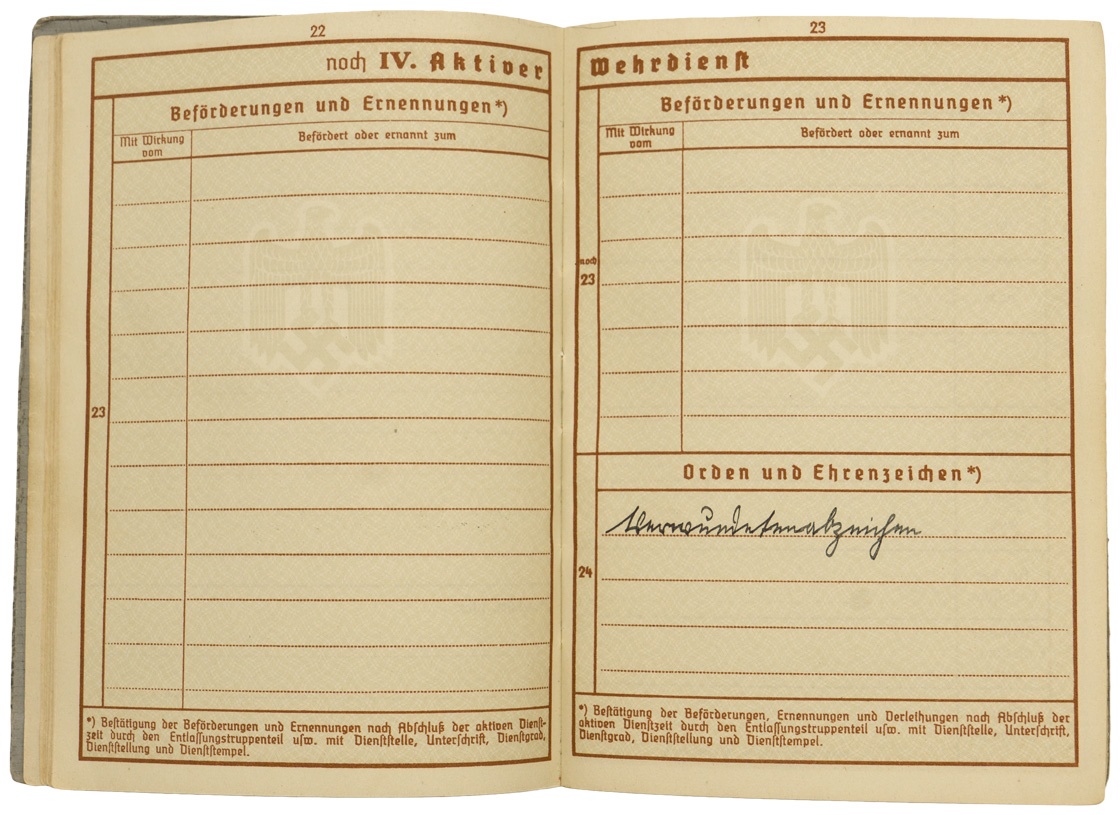 22
noch IV. Aktiver
Beförderungen und Ernennungen*)
Mit Wirkung
vom
Befördert oder ernannt zum
23
*) Bestätigung der Beförderungen und Ernennungen nach Abschluß der aktiven Dienst-
zeit durch den Entlassungstruppenteil usw. mit Dienststelle, Unterschrift, Dienstgrad,
Dienststellung und Dienststempel.
23
Wehrdienst
Beförderungen und Ernennungen*)
Mit Wirkung
vom
Befördert oder ernannt zum
noch
23
Orden und Ehrenzeichen*)
Verwundetenabzeichen
24
*) Bestätigung der Beförderungen, Ernennungen und Verleihungen nach Abschluß der
aktiven Dienstzeit durch den Entlassungstruppenteil usw. mit Dienststelle, Unterschrift,
Dienstgrad, Dienststellung und Dienststempel.